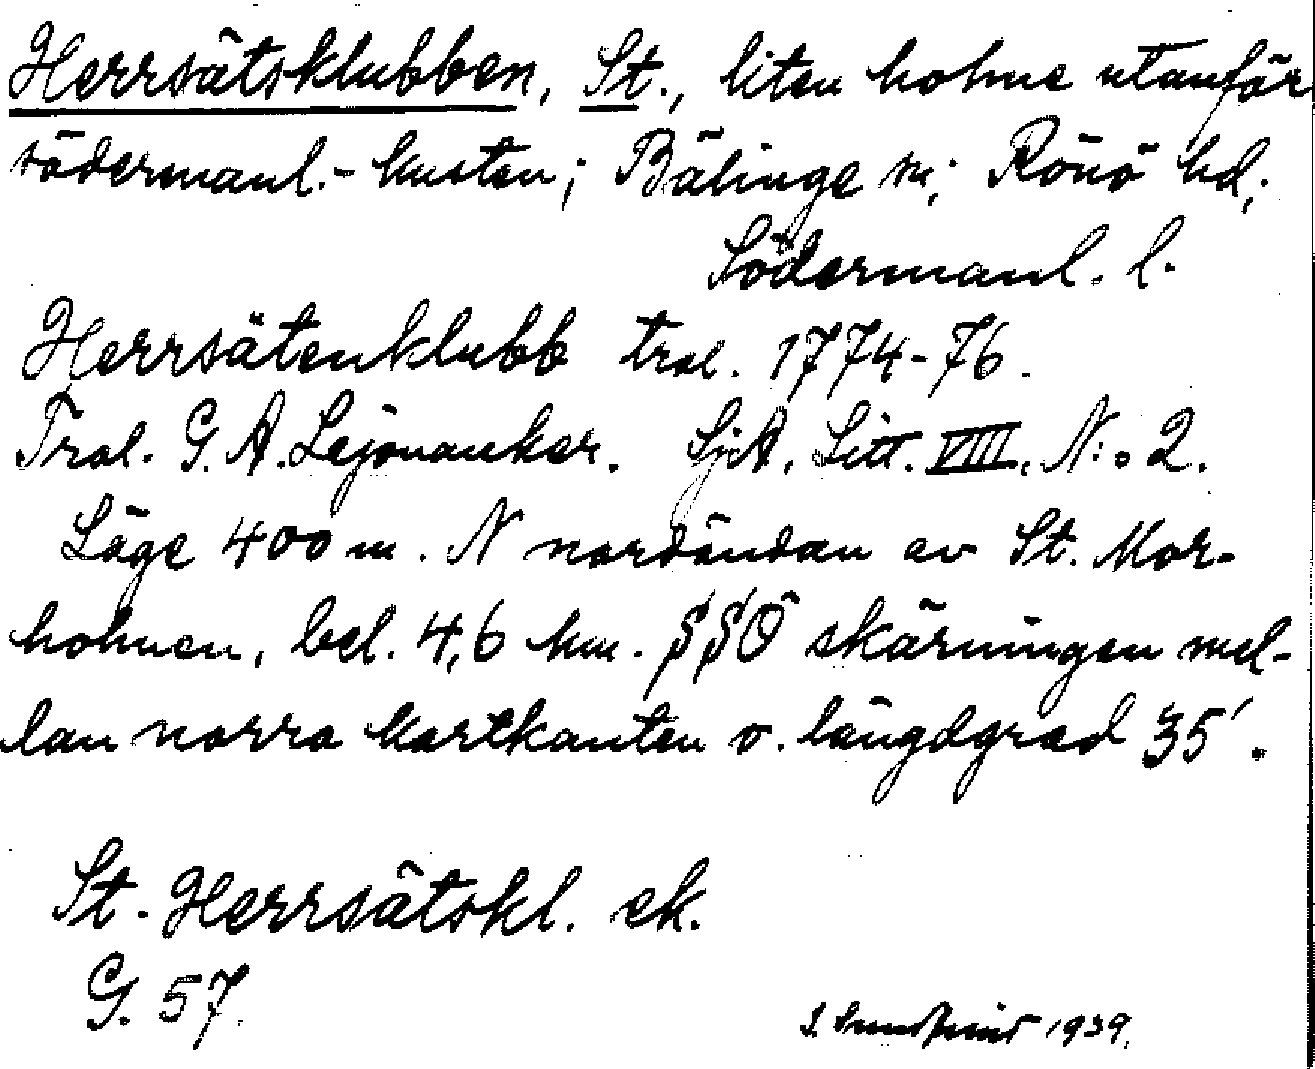 Herrsätsklubben, St., liten holme utanför
södermanl.-kusten; Bälinge sn; Rönö hd;
Södermanl. l.
Herrsätenklubb trol. 1774-76.
Trol. G. A. Lejonanker. SjA. Litt. VIII. N:o 2.
Läge 400 m. N nordändan av St. Mor-
holmen, bel. 4,6 km. SSÖ skärningen mel-
lan norra kartkanten o. längdgrad 35'.
St. Herrsätskl. ek.
G. 57.
1939.